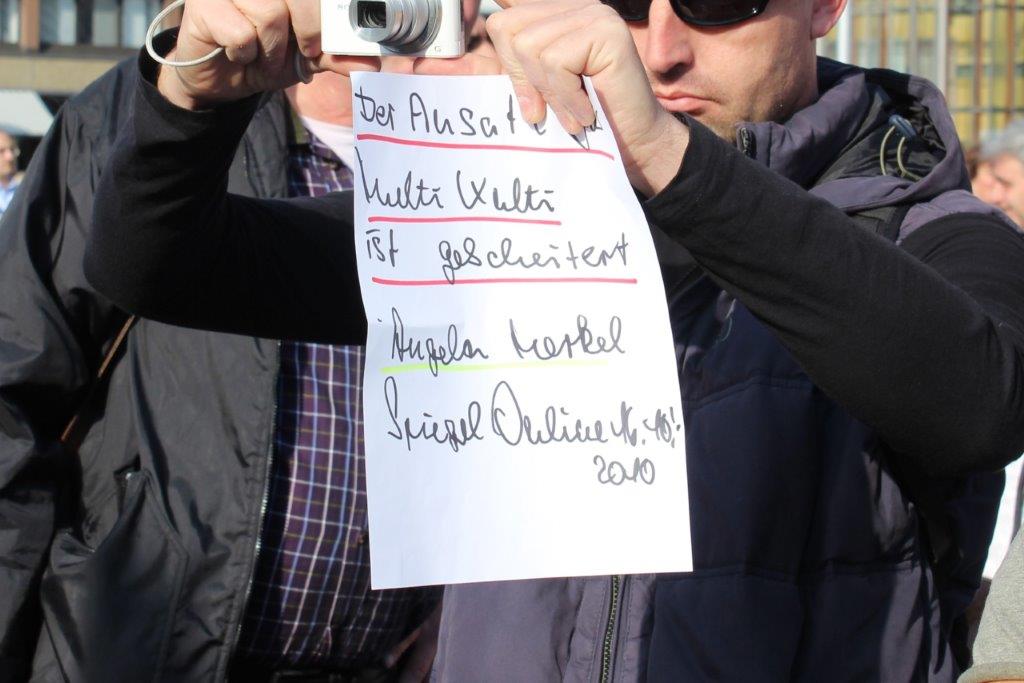 Der Ansatz
Multi Kulti
ist gescheitert
Angela Merkel
Spiegel Online 16.10!
2010